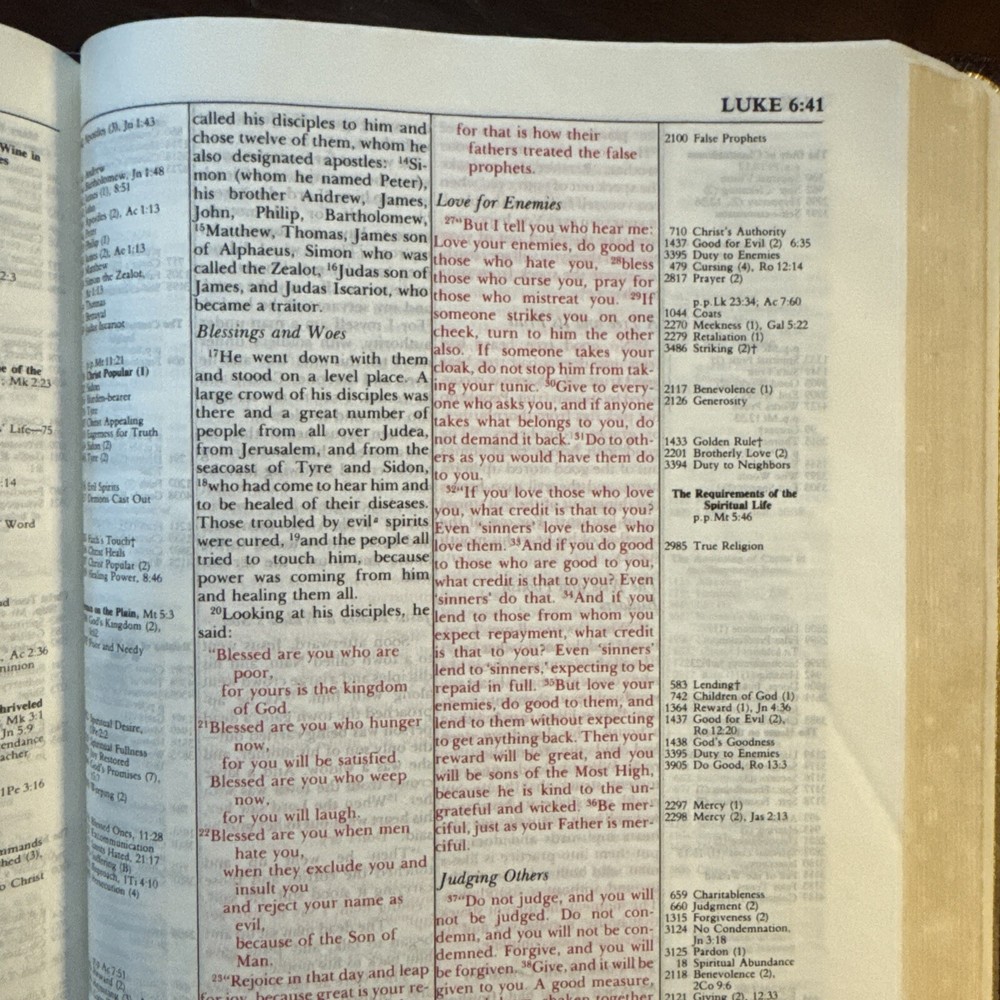 LUKE 6:41
Wine in
2:3
e of the
: Mk 2:23
' Life—75
:14
Word
Ac 2:36
hriveled
Mk 3:1
Jn 5:9
endance
acher
1Pe 3:16
mmands
hed (3),
o Christ
(3), Jn 1:43
Andrew
Bartholomew, Jn 1:48
James (1), 8:51
Apostles (2), Ac 1:13
(2), Ac 1:13
Simon the Zealot,
Ac 1:13
Betrayal
Judas Iscariot
p.p. Mt 11:21
Christ Popular (1)
Sidon
Burden-bearer
Tyre
Christ Appealing
Eagerness for Truth
Sidon (2)
Tyre (2)
Evil Spirits
Demons Cast Out
Touch†
Christ Heals
Christ Popular (2)
Healing Power, 8:46
on the Plain, Mt 5:3
God's Kingdom (2),
Poor and Needy
Spiritual Desire,
Spiritual Fullness
Joy Restored
God's Promises (7),
Weeping (2)
Blessed Ones, 11:28
Excommunication
Hated, 21:17
Suffering (B)
Reproach, 1Ti 4:10
Persecution (4)
called his disciples to him and
chose twelve of them, whom he
also designated apostles: 14Si-
mon (whom he named Peter),
his brother Andrew, James,
John, Philip, Bartholomew,
15Matthew, Thomas, James son
of Alphaeus, Simon who was
called the Zealot, 16Judas son of
James, and Judas Iscariot, who
became a traitor.
Blessings and Woes
17He went down with them
and stood on a level place. A
large crowd of his disciples was
there and a great number of
people from all over Judea,
from Jerusalem, and from the
seacoast of Tyre and Sidon,
18who had come to hear him and
to be healed of their diseases.
Those troubled by evila spirits
were cured, 19and the people all
tried to touch him, because
power was coming from him
and healing them all.
20Looking at his disciples, he
said:
"Blessed are you who are
poor,
for yours is the kingdom
of God.
21Blessed are you who hunger
now,
for you will be satisfied.
Blessed are you who weep
now,
for you will laugh.
22Blessed are you when men
hate you,
when they exclude you and
insult you
and reject your name as
evil,
because of the Son of
Man.
23"Rejoice in that day and leap
for joy, because great is your re-
for that is how their
fathers treated the false
prophets.
Love for Enemies
27"But I tell you who hear me:
Love your enemies, do good to
those who hate you, 28bless
those who curse you, pray for
those who mistreat you. 29If
someone strikes you on one
cheek, turn to him the other
also. If someone takes your
cloak, do not stop him from tak-
ing your tunic. 30Give to every-
one who asks you, and if anyone
takes what belongs to you, do
not demand it back. 31Do to oth-
ers as you would have them do
to you.
32"If you love those who love
you, what credit is that to you?
Even 'sinners' love those who
love them. 33And if you do good
to those who are good to you,
what credit is that to you? Even
'sinners' do that. 34And if you
lend to those from whom you
expect repayment, what credit
is that to you? Even 'sinners'
lend to 'sinners,' expecting to be
repaid in full. 35But love your
enemies, do good to them, and
lend to them without expecting
to get anything back. Then your
reward will be great, and you
will be sons of the Most High,
because he is kind to the un-
grateful and wicked. 36Be mer-
ciful, just as your Father is mer-
ciful.
Judging Others
37"Do not judge, and you will
not be judged. Do not con-
demn, and you will not be con-
demned. Forgive, and you will
be forgiven. 38Give, and it will be
given to you. A good measure,
shaken together
2100 False Prophets
710 Christ's Authority
1437 Good for Evil (2) 6:35
3395 Duty to Enemies
479 Cursing (4), Ro 12:14
2817 Prayer (2)
p.p. Lk 23:34; Ac 7:60
1044 Coats
2270 Meekness (1), Gal 5:22
2279 Retaliation (1)
3486 Striking (2)†
2117 Benevolence (1)
2126 Generosity
1433 Golden Rule†
2201 Brotherly Love (2)
3394 Duty to Neighbors
The Requirements of the
Spiritual Life
p.p. Mt 5:46
2985 True Religion
583 Lending†
742 Children of God (1)
1364 Reward (1), Jn 4:36
1437 Good for Evil (2),
Ro 12:20
1438 God's Goodness
3395 Duty to Enemies
3905 Do Good, Ro 13:3
2297 Mercy (1)
2298 Mercy (2), Jas 2:13
659 Charitableness
660 Judgment (2)
1315 Forgiveness (2)
3124 No Condemnation,
Jn 3:18
3125 Pardon (1)
18 Spiritual Abundance
2118 Benevolence (2),
2Co 9:6
2121 Giving (2), 12:33